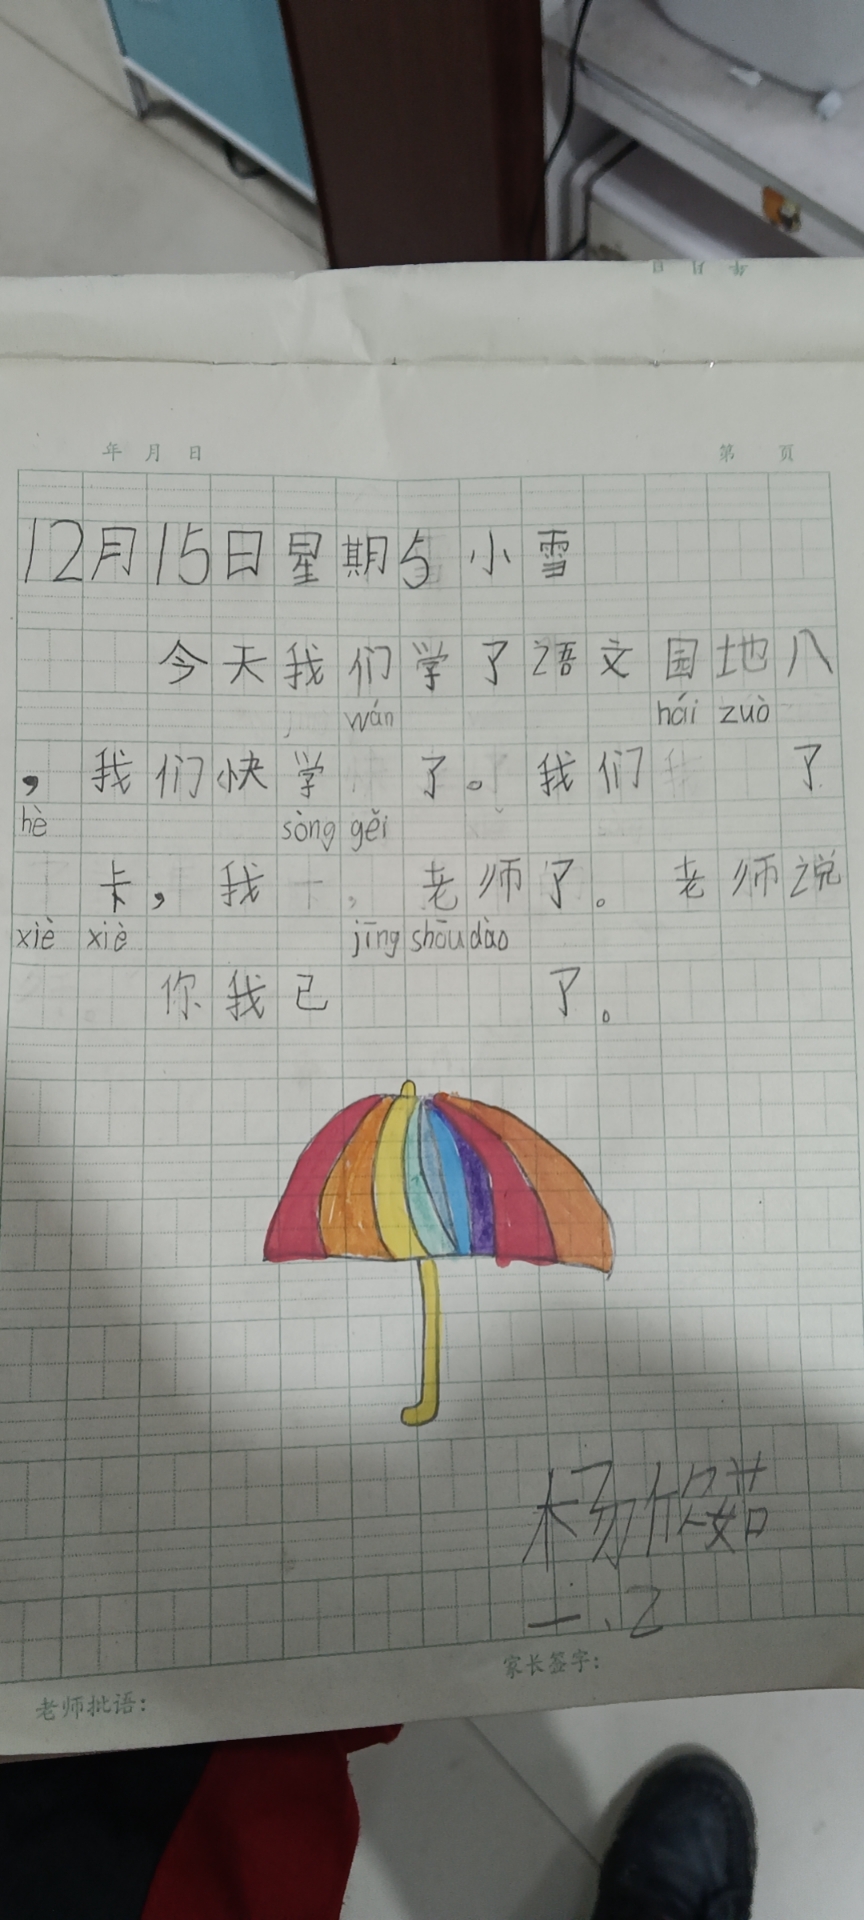 年 月 日
年 月 日 第 页
12月15日星期5 小雪
今天我们学了语文园地八
wán hái zuò
，我们快学 了。我们 了
hè sòng gěi
卡，我 老师了。老师说
xiè xiè jīng shōu dào
你我已 了。
杨馐茹
一.2
家长签字：
老师批语：